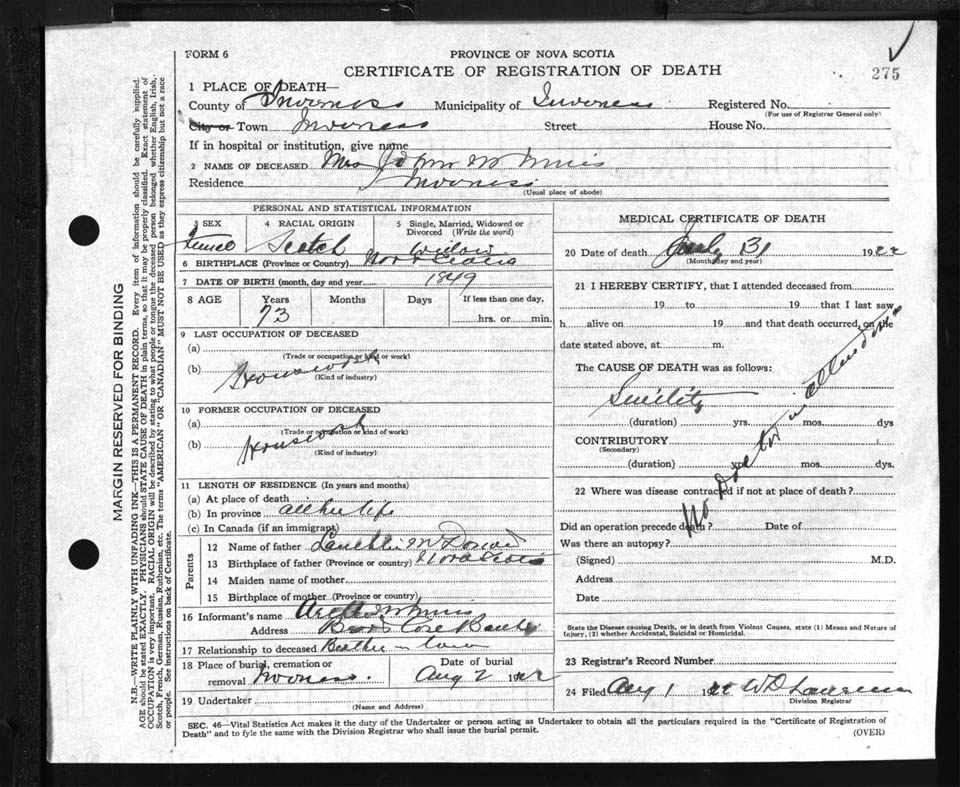 FORM 6
PROVINCE OF NOVA SCOTIA
CERTIFICATE OF REGISTRATION OF DEATH
275
1 PLACE OF DEATH—
County of Inverness Municipality of Inverness Registered No.
(For use of Registrar General only)
City or Town Inverness Street House No.
If in hospital or institution, give name
2 NAME OF DECEASED Mrs John McInnis
Residence Inverness
(Usual place of abode)
PERSONAL AND STATISTICAL INFORMATION
3 SEX 4 RACIAL ORIGIN 5 Single, Married, Widowed or Divorced (Write the word)
Scotch Widow
6 BIRTHPLACE (Province or Country) Nova Scotia
7 DATE OF BIRTH (month, day and year) 1849
8 AGE Years Months Days If less than one day,
73 hrs. or min.
9 LAST OCCUPATION OF DECEASED
(a)
(Trade or occupation or kind or work)
(b) Housework
(Kind of industry)
10 FORMER OCCUPATION OF DECEASED
(a)
(Trade or occupation or kind of work)
(b) Housework
(Kind of industry)
11 LENGTH OF RESIDENCE (In years and months)
(a) At place of death
(b) In province all her life
(c) In Canada (if an immigrant)
Parents
12 Name of father Lauchlin
13 Birthplace of father (Province or country) Nova Scotia
14 Maiden name of mother
15 Birthplace of mother (Province or country)
16 Informant's name McInnis
Address Cove
17 Relationship to deceased Brother in law
18 Place of burial, cremation or Date of burial
removal Inverness. Aug 2 1922
19 Undertaker
(Name and Address)
MEDICAL CERTIFICATE OF DEATH
20 Date of death July 31 1922
(Month, day and year)
21 I HEREBY CERTIFY, that I attended deceased from
19 to 19 that I last saw
h alive on 19 and that death occurred, on the
date stated above, at m.
The CAUSE OF DEATH was as follows:
Senility
(duration) yrs. mos. dys
CONTRIBUTORY
(Secondary)
(duration) yrs. mos. dys.
No Doctor in attendance
22 Where was disease contracted if not at place of death?
Did an operation precede death? Date of
Was there an autopsy?
(Signed) M.D.
Address
Date
State the Disease causing Death, or in death from Violent Causes, state (1) Means and Nature of
Injury, (2) whether Accidental, Suicidal or Homicidal.
23 Registrar's Record Number
24 Filed Aug 1 1922 W D Lawrence
Division Registrar
SEC. 46—Vital Statistics Act makes it the duty of the Undertaker or person acting as Undertaker to obtain all the particulars required in the "Certificate of Registration of
Death" and to fyle the same with the Division Registrar who shall issue the burial permit.
(OVER)
MARGIN RESERVED FOR BINDING
N.B.—WRITE PLAINLY WITH UNFADING INK—THIS IS A PERMANENT RECORD. Every item of information should be carefully supplied.
AGE should be stated EXACTLY. PHYSICIANS should STATE CAUSE OF DEATH in plain terms, so that it may be properly classified. Exact statement of
OCCUPATION is very important. RACIAL ORIGIN will be described by stating to what people or tongue the deceased person belonged whether English, Irish,
Scotch, French, German, Russian, Ruthenian, etc. The terms "AMERICAN" OR "CANADIAN" MUST NOT BE USED as they express citizenship but not a race
or people. See instructions on back of Certificate.